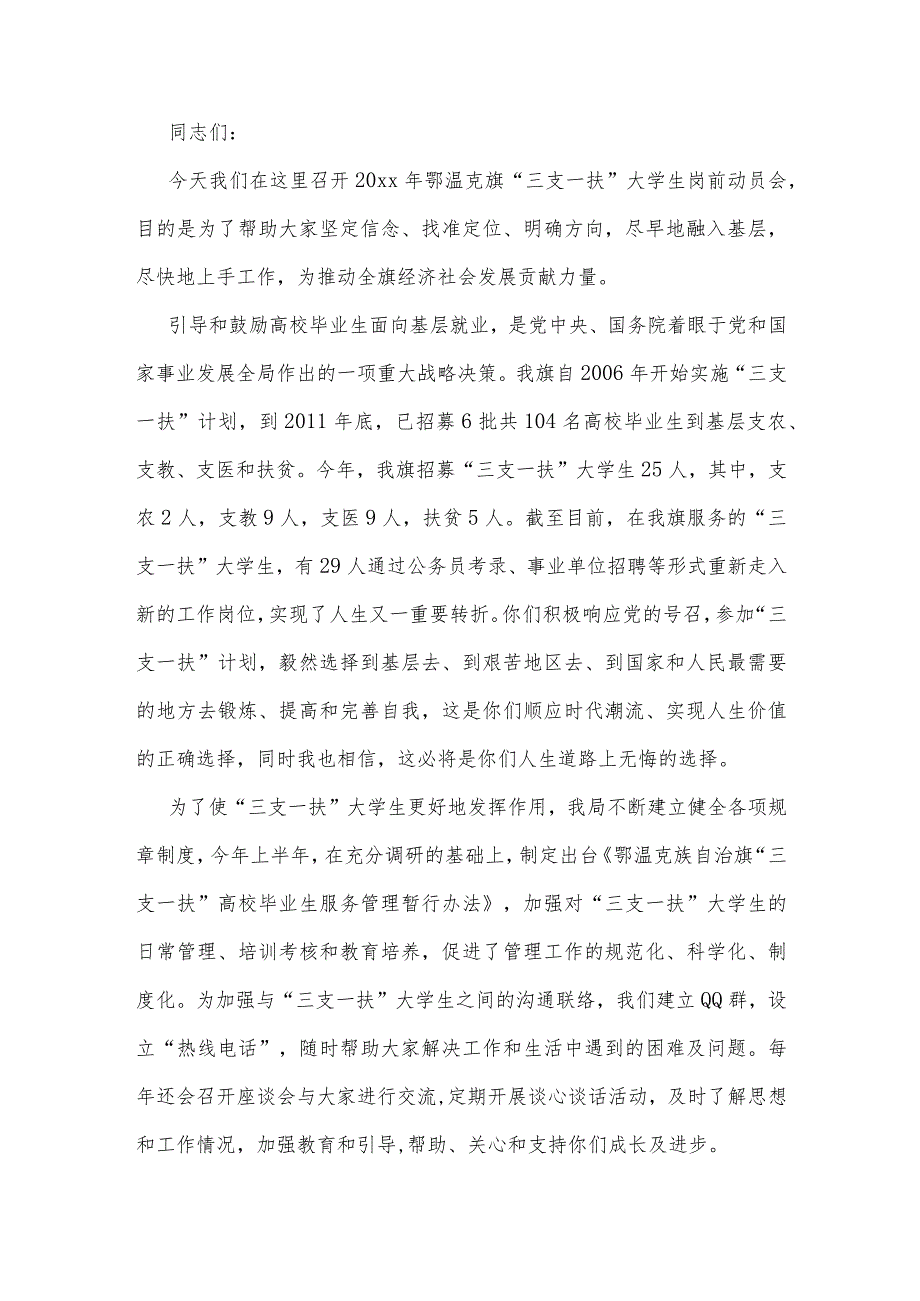 同志们：
今天我们在这里召开20xx年鄂温克旗“三支一扶”大学生岗前动员会，
目的是为了帮助大家坚定信念、找准定位、明确方向，尽早地融入基层，
尽快地上手工作，为推动全旗经济社会发展贡献力量。
引导和鼓励高校毕业生面向基层就业，是党中央、国务院着眼于党和国
家事业发展全局作出的一项重大战略决策。我旗自2006年开始实施“三支
一扶”计划，到2011年底，已招募6批共104名高校毕业生到基层支农、
支教、支医和扶贫。今年，我旗招募“三支一扶”大学生25人，其中，支
农2人，支教9人，支医9人，扶贫5人。截至目前，在我旗服务的“三
支一扶”大学生，有29人通过公务员考录、事业单位招聘等形式重新走入
新的工作岗位，实现了人生又一重要转折。你们积极响应党的号召，参加“三
支一扶”计划，毅然选择到基层去、到艰苦地区去、到国家和人民最需要
的地方去锻炼、提高和完善自我，这是你们顺应时代潮流、实现人生价值
的正确选择，同时我也相信，这必将是你们人生道路上无悔的选择。
为了使“三支一扶”大学生更好地发挥作用，我局不断建立健全各项规
章制度，今年上半年，在充分调研的基础上，制定出台《鄂温克族自治旗“三
支一扶”高校毕业生服务管理暂行办法》，加强对“三支一扶”大学生的
日常管理、培训考核和教育培养，促进了管理工作的规范化、科学化、制
度化。为加强与“三支一扶”大学生之间的沟通联络，我们建立QQ群，设
立“热线电话”，随时帮助大家解决工作和生活中遇到的困难及问题。每
年还会召开座谈会与大家进行交流,定期开展谈心谈话活动，及时了解思想
和工作情况，加强教育和引导,帮助、关心和支持你们成长及进步。